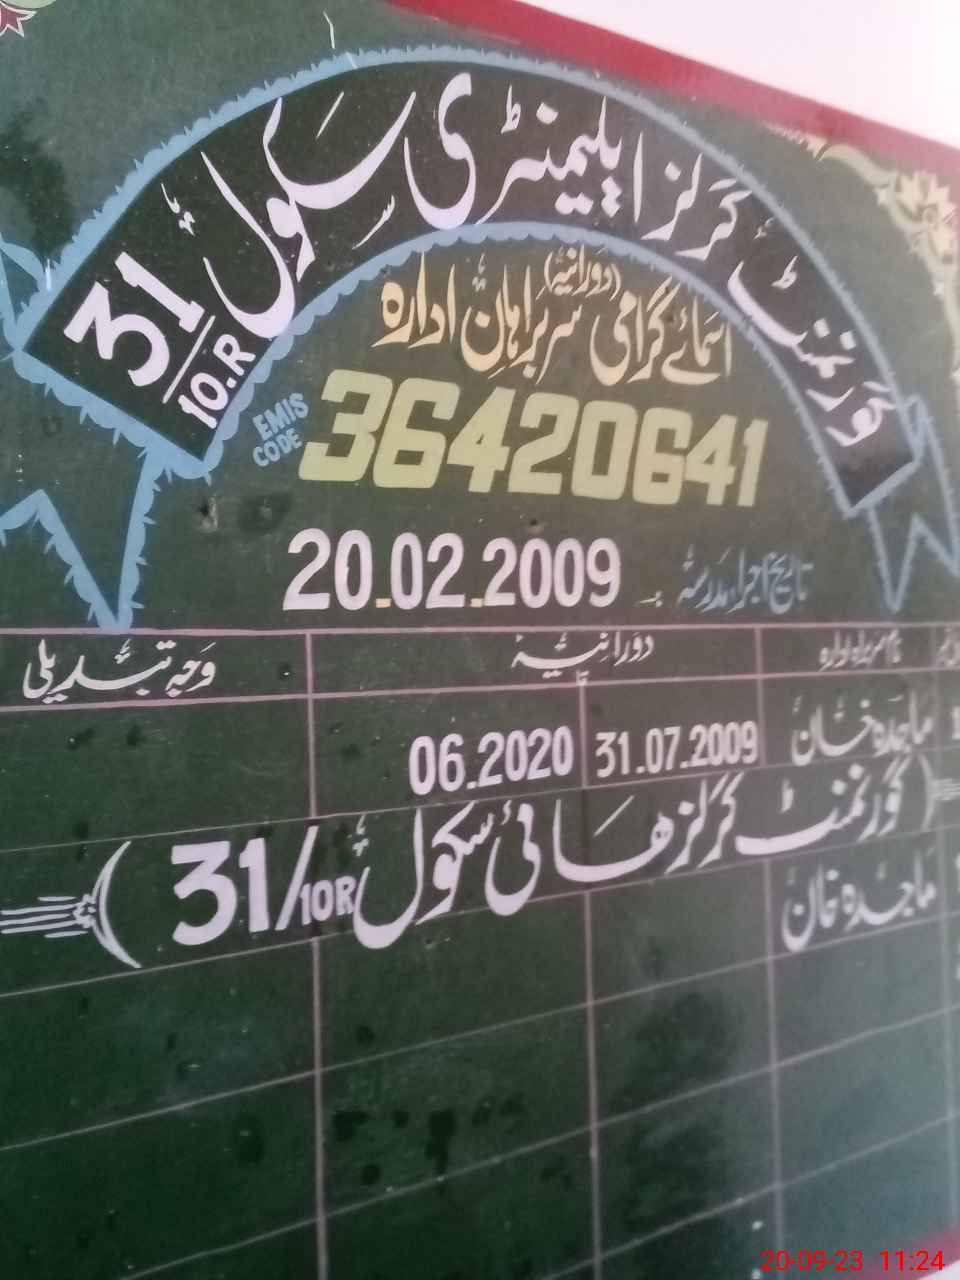 گورنمنٹ گرلز ایلیمنٹری سکول 31/10.R
اسمائے گرامی (دورانیہ) سربراہان ادارہ
EMIS CODE 36420641
تاریخ اجراء مدرسہ :- 20.02.2009
نام سربراہ ادارہ دورانیہ وجہ تبدیلی
تا
1 ماجدہ خان 31.07.2009 06.2020
(گورنمنٹ گرلز ھائی سکول 31/10R)
ماجدہ خان
20-09-23 11:24